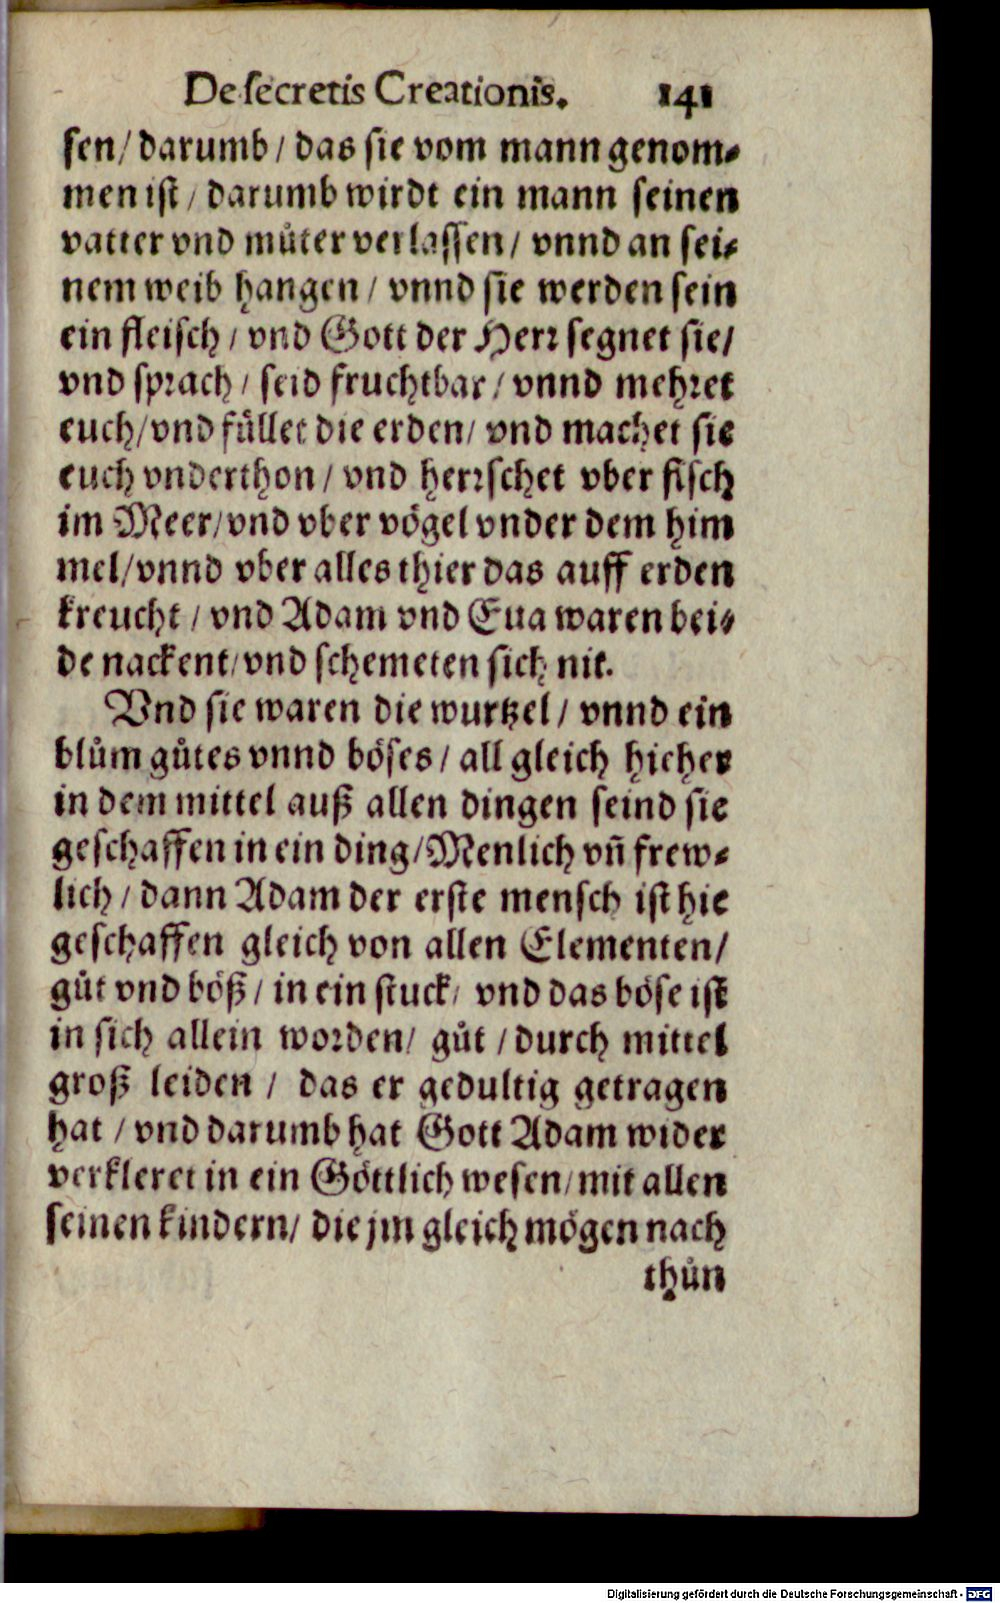 De secretis Creationis. 141
sen/ darumb/ das sie vom mann genom⸗
men ist/ darumb wirdt ein mann seinen
vatter vnd můter verlassen/ vnnd an sei⸗
nem weib hangen/ vnnd sie werden sein
ein fleisch/ vnd Gott der Herr segnet sie/
vnd sprach/ seid fruchtbar/ vnnd mehret
euch/ vnd füllet die erden/ vnd machet sie
euch vnderthon/ vnd herrschet vber fisch
im Meer/ vnd vber vögel vnder dem him
mel/ vnnd vber alles thier das auff erden
kreucht/ vnd Adam vnd Eua waren bei⸗
de nackent/ vnd schemeten sich nit.
Vnd sie waren die wurtzel/ vnnd ein
blům gůtes vnnd böses/ all gleich hieher
in dem mittel auß allen dingen seind sie
geschaffen in ein ding/ Menlich vñ frew⸗
lich/ dann Adam der erste mensch ist hie
geschaffen gleich von allen Elementen/
gůt vnd böß/ in ein stuck/ vnd das böse ist
in sich allein worden/ gůt/ durch mittel
groß leiden/ das er gedultig getragen
hat/ vnd darumb hat Gott Adam wider
verkleret in ein Göttlich wesen/ mit allen
seinen kindern/ die jm gleich mögen nach
thůn
Digitalisierung gefördert durch die Deutsche Forschungsgemeinschaft - DFG